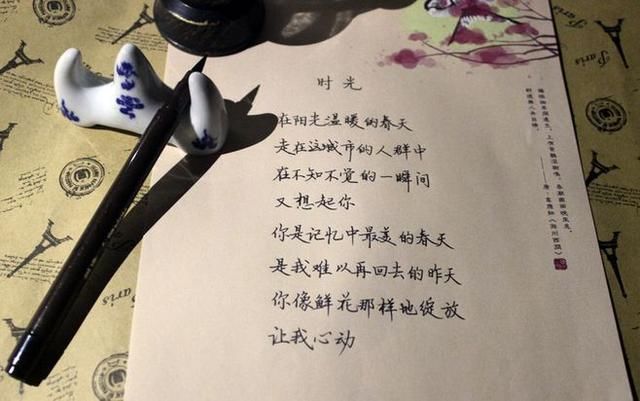 时光
在阳光温暖的春天
走在这城市的人群中
在不知不觉的一瞬间
又想起你
你是记忆中最美的春天
是我难以再回去的昨天
你像鲜花那样地绽放
让我心动
Paris